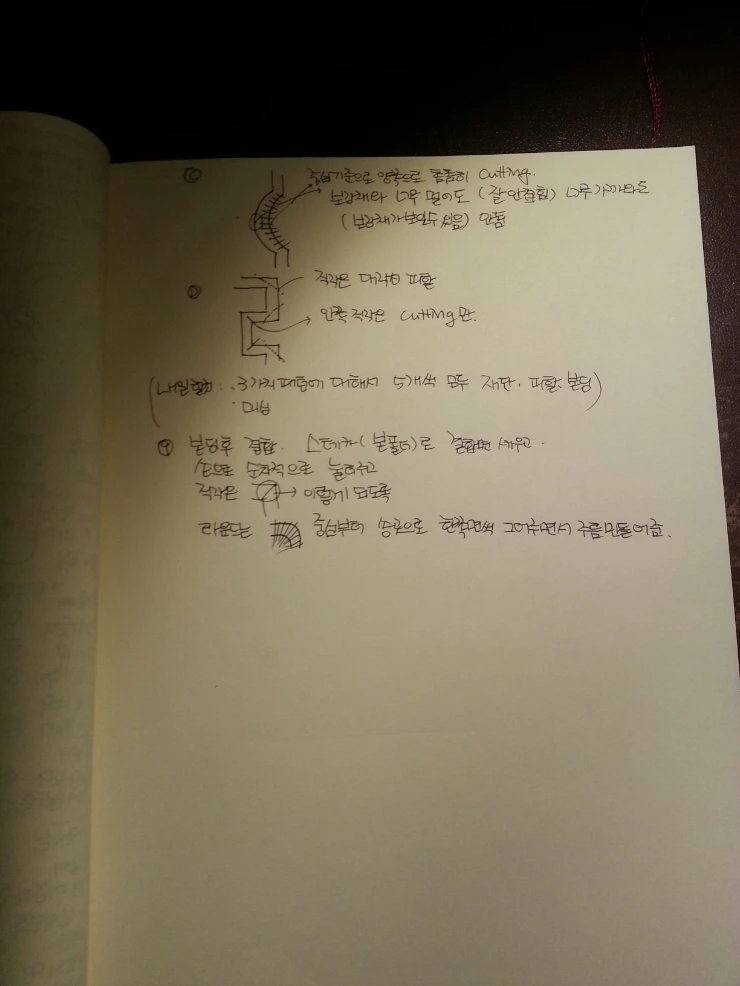 ⓒ 중심기준으로 양쪽으로 촘촘히 cutting.
보강재와 너무 멀어도 (잘 안접힘) 너무 가까와도
(보강재가 보일수 있음) 안됨
ⓓ 직각은 대각선 피할
안쪽 직각은 cutting만.
(내일할일 : · 3가지 패턴에 대해서 5개씩 모두 재단, 피할, 본딩)
· 미싱
④ 본딩후 결합. 스테카(본폴더)로 결합면 세우고.
손으로 순차적으로 눌러주고
직각은 → 이렇게 되도록
라운드는 중심부터 송곳으로 한쪽면씩 그어주면서 주름 만들어줌.